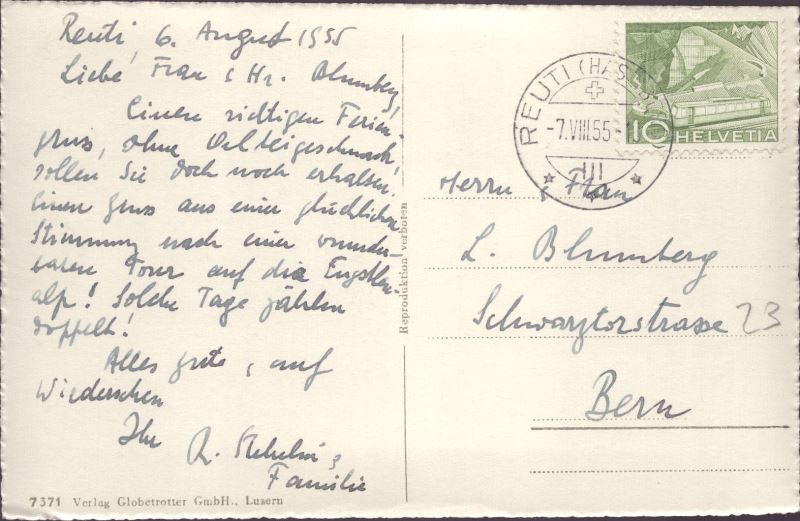 Reuti, 6. August 1955
Liebe Frau & Hr. Blumberg!
Einen richtigen Ferien-
gruss, ohne
sollen Sie doch noch erhalten.
Einen Gruss aus einer glücklichen
Stimmung nach einer wunder-
baren Tour auf die Engstlen-
alp! Solche Tage zählen
doppelt!
Alles gute & auf
Wiedersehen
Ihr R. Stehelin &
Familie
7371 Verlag Globetrotter GmbH., Luzern
Reproduktion verboten
REUTI (HASLIBERG)
-7.VIII.55-
III
10 HELVETIA
Herrn & Frau
L. Blumberg
Schwarztorstrasse 23
Bern